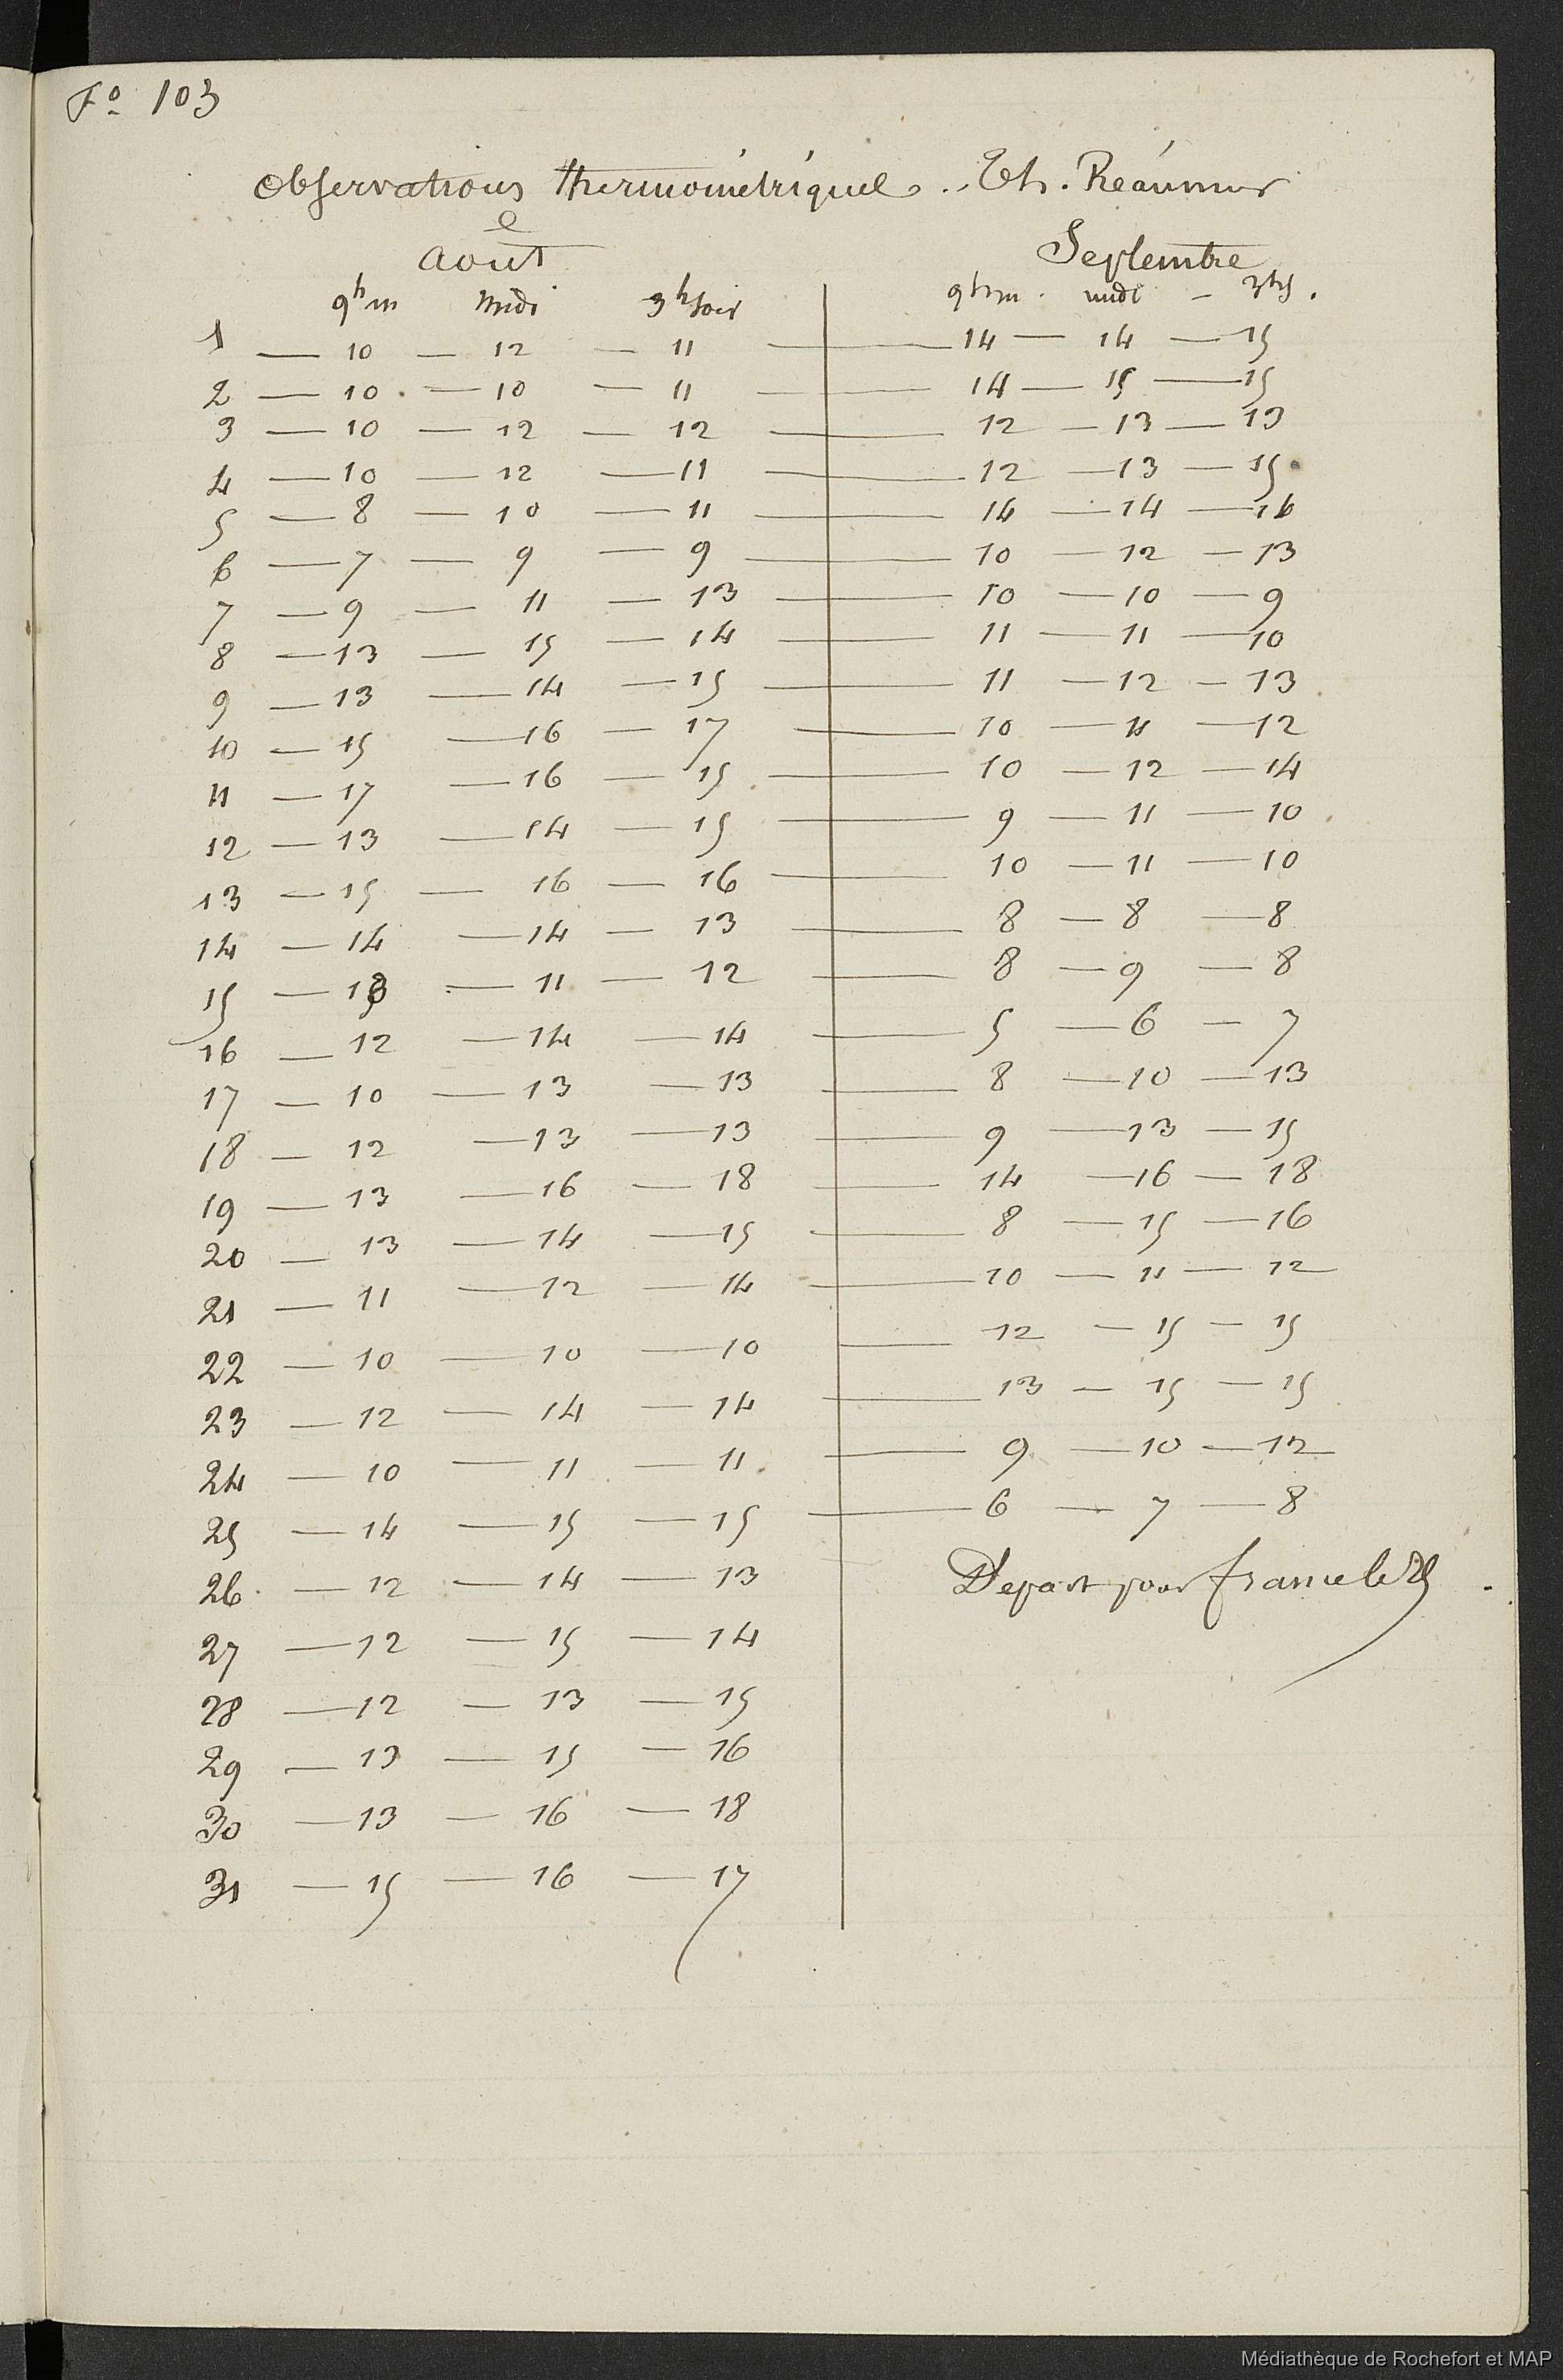 Fº 103
Observations thermométriques .. Th. Réaumur
Août
Septembre
9h m midi 3h soir 9h m. midi — 3h s.
1 — 10 — 12 — 11 — 14 — 14 — 15
2 — 10 — 10 — 11 — 14 — 15 — 15
3 — 10 — 12 — 12 — 12 — 13 — 13
4 — 10 — 12 — 11 — 12 — 13 — 15
5 — 8 — 10 — 11 — 14 — 14 — 16
6 — 7 — 9 — 9 — 10 — 12 — 13
7 — 9 — 11 — 13 — 10 — 10 — 9
8 — 13 — 15 — 14 — 11 — 11 — 10
9 — 13 — 14 — 15 — 11 — 12 — 13
10 — 15 — 16 — 17 — 10 — 11 — 12
11 — 17 — 16 — 15 — 10 — 12 — 14
12 — 13 — 14 — 15 — 9 — 11 — 10
13 — 15 — 16 — 16 — 10 — 11 — 10
14 — 14 — 14 — 13 — 8 — 8 — 8
15 — 13 — 11 — 12 — 8 — 9 — 8
16 — 12 — 14 — 14 — 5 — 6 — 7
17 — 10 — 13 — 13 — 8 — 10 — 13
18 — 12 — 13 — 13 — 9 — 13 — 15
19 — 13 — 16 — 18 — 14 — 16 — 18
20 — 13 — 14 — 15 — 8 — 15 — 16
21 — 11 — 12 — 14 — 10 — 11 — 12
22 — 10 — 10 — 10 — 12 — 15 — 15
23 — 12 — 14 — 14 — 13 — 15 — 15
24 — 10 — 11 — 11 — 9 — 10 — 12
25 — 14 — 15 — 15 — 6 — 7 — 8
26 — 12 — 14 — 13 Départ pour france le 25
27 — 12 — 15 — 14
28 — 12 — 13 — 15
29 — 13 — 15 — 16
30 — 13 — 16 — 18
31 — 15 — 16 — 17
Médiathèque de Rochefort et MAP